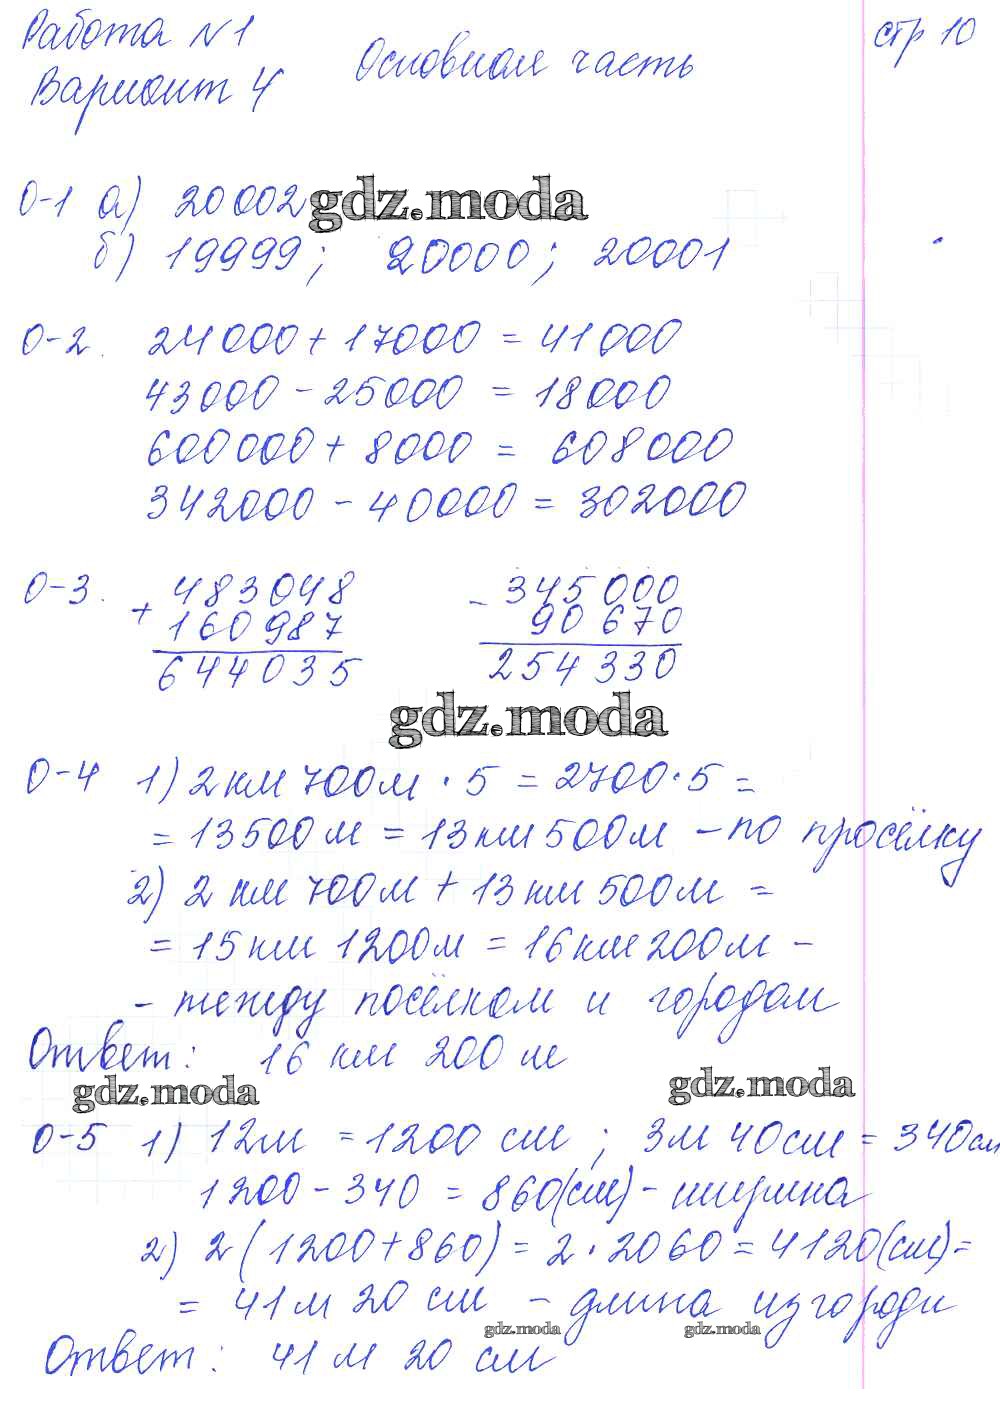 Работа N1
стр 10
Вариант 4
Основная часть
О-1 а) 20002
gdz.moda
б) 19999; 20000; 20001
О-2. 24000 + 17000 = 41000
43000 - 25000 = 18000
600000 + 8000 = 608000
342000 - 40000 = 302000
О-3. + 483048 - 345000
160987 90670
644035 254330
gdz.moda
О-4 1) 2 км 700 м · 5 = 2700 · 5 =
= 13500 м = 13 км 500 м - по просёлку
2) 2 км 700 м + 13 км 500 м =
= 15 км 1200 м = 16 км 200 м -
- между посёлком и городом
Ответ: 16 км 200 м
gdz.moda gdz.moda
О-5 1) 12 м = 1200 см ; 3 м 40 см = 340 см
1200 - 340 = 860 (см) - ширина
2) 2 (1200 + 860) = 2 · 2060 = 4120 (см) =
= 41 м 20 см - длина изгороди
gdz.moda gdz.moda
Ответ: 41 м 20 см